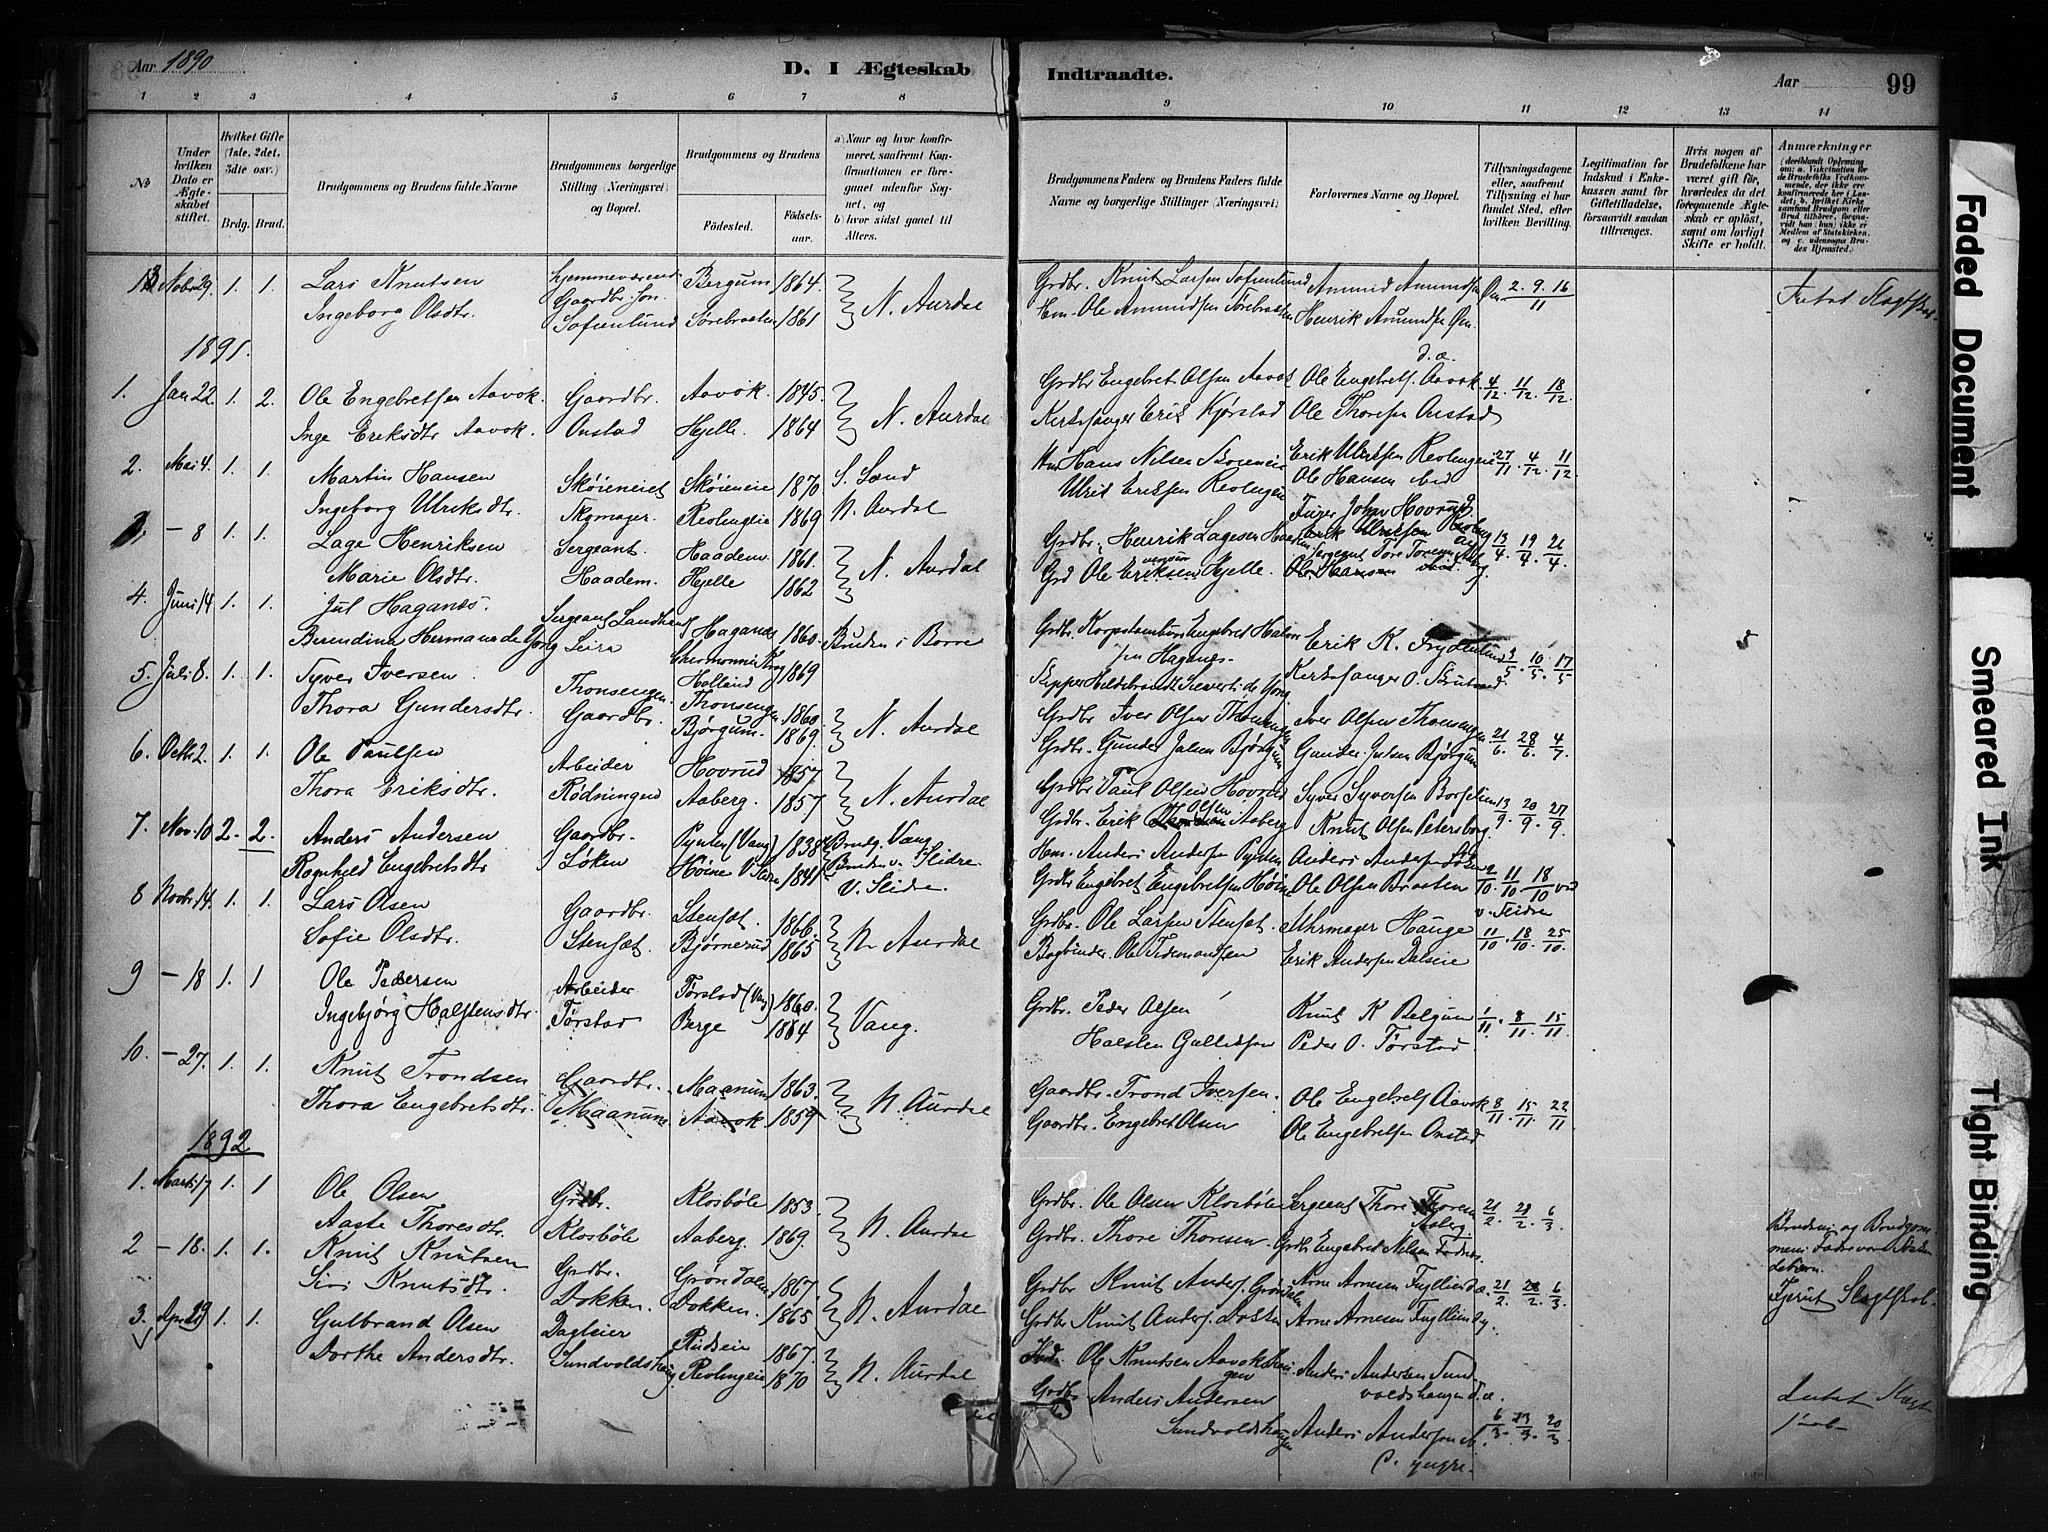 Aar 1890 D. I Ægteskab Indtraadte. Aar 99
1 2 3 4 5 6 7 8 9 10 11 12 13 14
№
Under hvilken Dato er Ægteskabet stiftet.
Hvilket Gifte (1ste, 2det, 3die osv.)
Brdg. Brud.
Brudgommens og Brudens fulde Navne
Brudgommens borgerlige Stilling (Næringsvei) og Bopæl.
Brudgommens og Brudens
Fødested. Fødselsaar.
a) Naar og hvor konfirmeret, saafremt Konfirmationen er foregaaet udenfor Sognet, og
b) hvor sidst gaaet til Alters.
Brudgommens Faders og Brudens Faders fulde Navne og borgerlige Stillinger (Næringsvei)
Forlovernes Navne og Bopæl.
Tillysningsdagene eller, saafremt Tillysning ei har fundet Sted, efter hvilken Bevilling.
Legitimation for Indskud i Enkekassen samt for Giftetilladelse, forsaavidt saadan tiltrænges.
Hvis nogen af Brudefolkene har været gift før, hvorledes da det foregaaende Ægteskab er opløst, samt om lovligt Skifte er holdt.
Anmærkninger
13 Nobr 29. 1. 1. Lars Knutsen Bergum 1864 Grdbr. Knut Larsen Sofienlund Ammund Amundsen 2. 9. 16
Ingeborg Olsdtr. Sofienlund Sørebraaten 1861 N. Aurdal Hm. Ole Ammundsen Sørebraaten Henrik Amundsen 11
1891.
1. Jan 22. 1. 2. Ole Engebretsen Aavok. Gaardbr. Aavok. 1845. Grdbr Engebret Olsen Aavok Ole Engebrets. Aavok 4/12 11/12 18/12
Inge Eriksdtr Aavok. Onstad Hjelle. 1864 N. Aurdal Kirkesanger Erik Kjørstad Ole Thoresen Onstad
2. Mai 4. 1. 1. Martin Hansen Skøieneiet Skøieneie 1870 S. Land Hm Hans Nilsen Erik Ulriksen Revlingeie 27/11. 4/12. 11/12
Ingeborg Ulriksdtr. Skomager. Revlingeie 1869 N. Aurdal Ulrik Eriksen Revlingeie Ole Hansen ibid
3. - 8 1. 1. Lage Henriksen Sergeant. Haadem. 1861. Grdbr. Henrik Lagesen 13/4. 19/4. 26/4
Marie Olsdtr. Haadem. Hjelle 1862 N. Aurdal Grd Ole Eriksen Hjelle. Ole Hansen
4. Juni 14 1. 1. Jul Haganæs. Sergeant Haganæs 1860. Bruden i Borre Grdbr. Korpstambur Engebret Halvorsen Haganæs. Erik K. Frydenlund 3/5. 10/5. 17/5
Berendina Hermana de Jong Leira Holland 1869 Skipper Hildebrandt Sievert de Jong. Kirkesanger O.
5. Juli 8. 1. 1. Syver Iversen Thonsengen Thonsengen 1860. Grdbr Iver Olsen Thonsengen Iver Olsen Thonsengen 21/6 28/6. 4/7.
Thora Gundersdtr. Gaardbr. Bjørgum. 1869. N. Aurdal Grdbr. Gunder Julsen Bjørgum Gunder Julsen Bjørgum
6. Octbr 2. 1. 1. Ole Paulsen Arbeider Hovrud 1857 Grdbr Paul Olsen Hovrud Syver Syversen 13/9. 20/9. 27/9
Thora Eriksdtr. Rødningen Aaberg. 1857. N. Aurdal Grdbr. Erik Olsen Aaberg Knut Olsen Petersborg
7. Nov. 10 2. 2. Anders Andersen Gaardbr. Pynten (Vang) 1838 Brudg. Vang. Hm. Anders Andersen Pynten Anders Andersen Løken 2/10. 11/10 18/10
Ragnhild Engebretsdtr Løken Høine V. Slidre 1841 Bruden V. Slidre. V. Slidre. Grdbr Engebret Engebretsen Høine Ole Olsen Braaten v. Slidre
8 Novbr 14. 1. 1. Lars Olsen Gaardbr. Stensæt. 1866. Grdbr. Ole Larsen Stensæt. Uhrmager Hauge 11/10. 18/10. 25/10.
Sofie Olsdtr. Stensæt. Bjørnerud 1865 N. Aurdal Bogbinder Ole Tidemandsen Erik Andersen Dalseie
9 - 18 1. 1 Ole Pedersen Arbeider Førstad (Vang) 1860. Grdbr. Peder Olsen Knut K Belgum 1/11. 8/11. 15/11
Ingebjørg Halstensdtr. Førstad Berge 1864 Vang. Halsten Gulliksen Peder O. Førstad
10. - 27. 1. 1. Knut Trondsen Gaardbr. Maanum 1863. Gaardbr. Trond Iversen. Ole Engebrets Aavok 8/11. 15/11. 22/11
Thora Engebretsdtr. Maanum Aavok 1859 N. Aurdal Gaardbr. Engebret Olsen Ole Engebretsen Onstad
1892
1. Marts 17 1. 1 Ole Olsen Grdbr. Klosbøle 1853. Grdbr. Ole Olsen Klosbøle Sergeant Thore Thoresen Aaberg 21/2. 28/2. 6/3
Aaste Thoresdtr. Klosbøle Aaberg. 1869. N. Aurdal Grdbr. Thore Thoresen. Grdbr Engebret Nilsen
2 - 18. 1. 1. Knut Knutsen Grdbr. Grøndalen 1867. Grdbr Knut Anders. Grøndalen Arne Arnesen Fuglliend. æ. 21/2. 28/2. 6/3
Siri Knutsdtr. Dokken. Dokken. 1865 N. Aurdal Grdbr Knut Anders. Dokken Arne Arnesen
Brudens og Brudgommens Fader var Søskendebørn.
3. Apr. 29 1. 1. Gulbrand Olsen Dagleier Rudseie 1867. Ole Knutsen Aavokshaugen Anders Andersen Sundvoldshaugen d. æ.
Dorthe Andersdtr. Sundvoldshaug. Revlingeie 1870 N. Aurdal Grdbr Anders Andersen Sundvoldshaugen Anders Andersen d. yngre. 6/3. 13/3. 20/3
Faded Document
Smeared Ink
Tight Binding